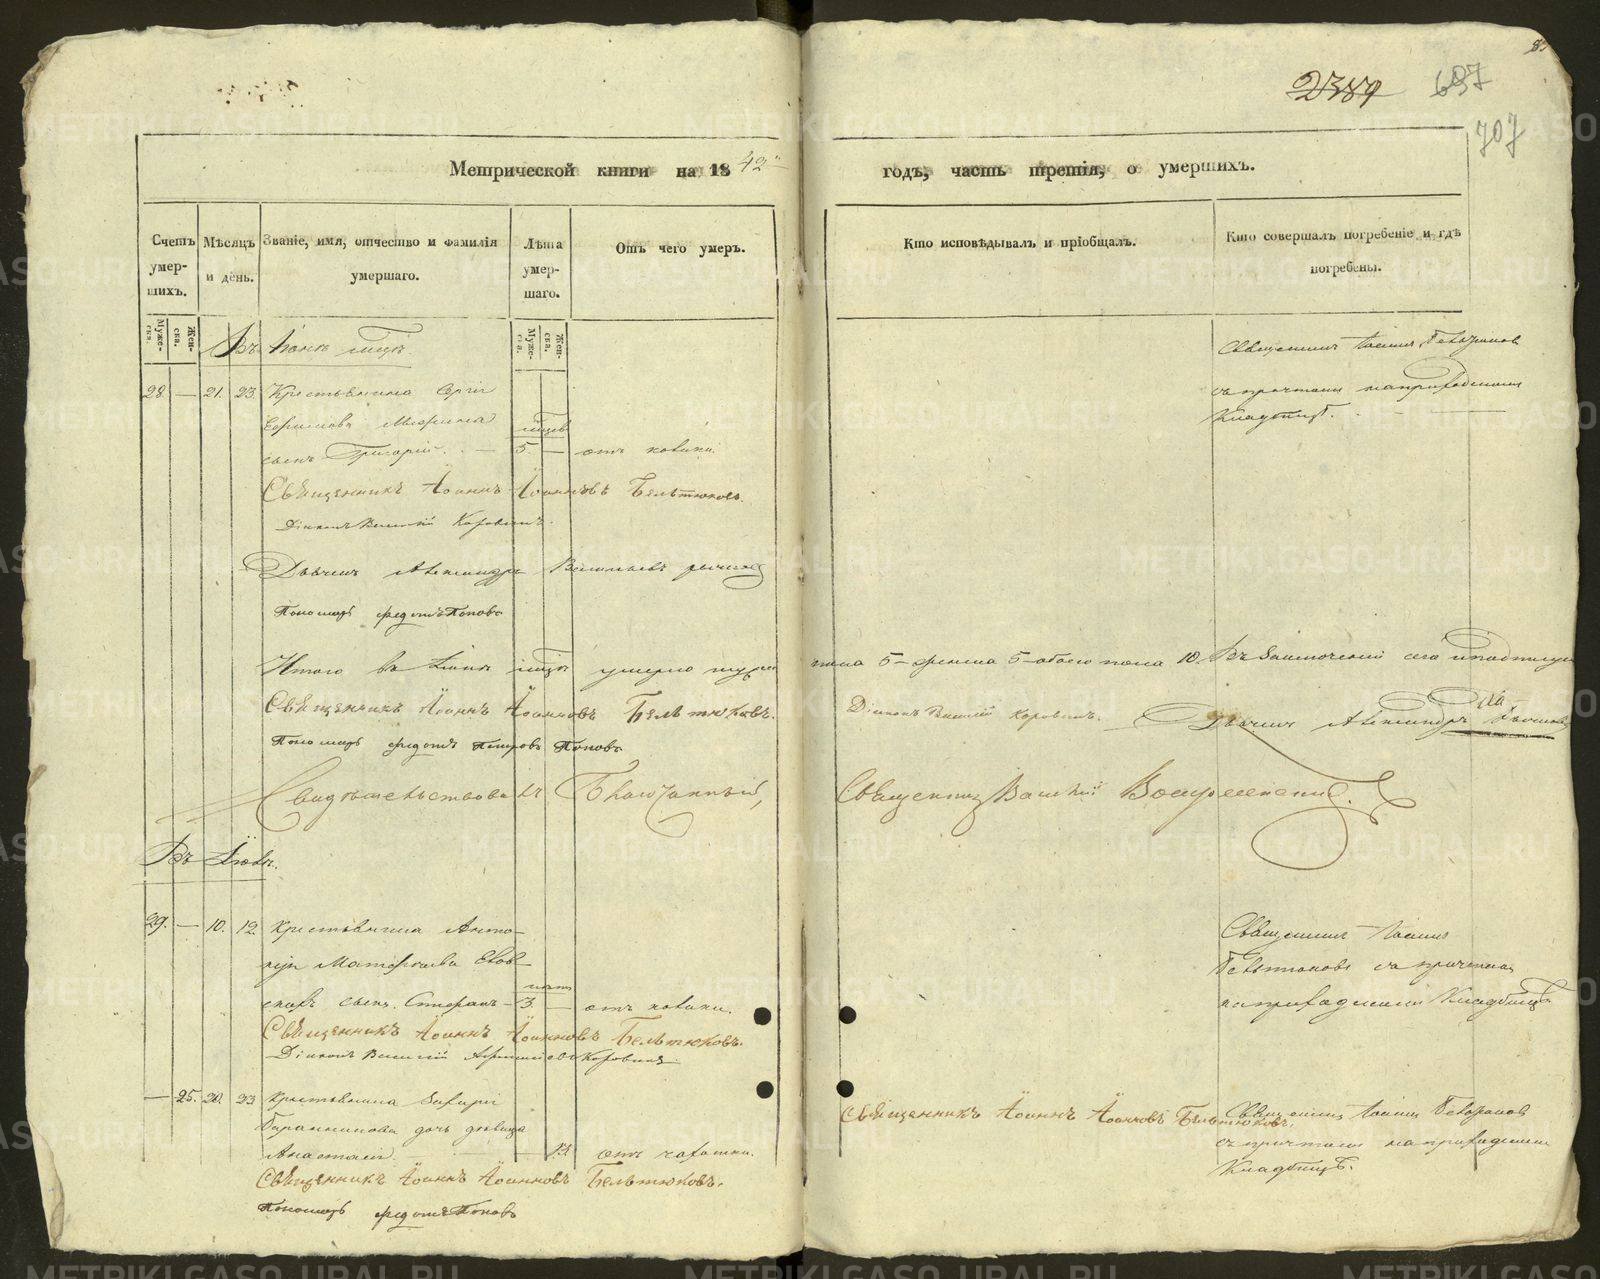 83
2389 697
707
Метрической книги на 1842 годъ, часть третія, о умершихъ.
Счетъ умершихъ. Мѣсяцъ и день. Званіе, имя, отчество и фамилія умершаго. Лѣта умершаго. Отъ чего умеръ. Кто исповѣдывалъ и пріобщалъ. Кто совершалъ погребеніе и гдѣ погребены.
Мужеска. Женска. Мужеска. Женска.
Въ Іюнѣ мцѣ.
28. — 21. 23. Крестьянина Сергія
сынъ Григорій. — 5. — отъ
Священникъ Іоаннъ
съ причтомъ на приходскомъ
Кладбищѣ.
Священникъ Іоаннъ Іоанновъ Бельтюковъ.
Діаконъ Василій Коровинъ.
Дьячекъ Александръ Васильевъ
Пономарь Федотъ Поповъ
Итого въ Іюнѣ мцѣ умерло муже пола 5 — женска 5 — обоего пола 10. Въ
Священникъ Іоаннъ Іоанновъ Бельтюковъ. Діаконъ Василій Коровинъ. Дьячекъ Александръ
Пономарь Федотъ Петровъ Поповъ
Свидѣтельствовалъ Благочинный, Священникъ Василій
Въ Іюлѣ.
29. — 10. 12. Крестьянина
сынъ Стефанъ — 3 — отъ
Священникъ Іоаннъ
Бельтюковъ съ причтомъ
на приходскомъ Кладбищѣ
Священникъ Іоаннъ Іоанновъ Бельтюковъ.
Діаконъ Василій Коровинъ.
— 25. 20. 23 Крестьянина
дочь дѣвица
— 13. отъ чахотки.
Священникъ Іоаннъ Іоанновъ Бельтюковъ.
Священникъ Іоаннъ
съ причтомъ на приходскомъ
Кладбищѣ.
Священникъ Іоаннъ Іоанновъ Бельтюковъ.
Пономарь Федотъ Поповъ
METRIKI.GASO-URAL.RU